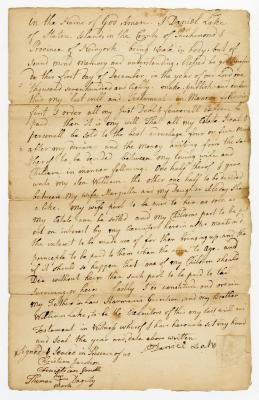 In the Name of God Amen. I Daniel Lake
of Staten Island, in the County of Richmond &
Province of Newyork being weak in body, but of
sound mind Memory and understanding, blessed be god for it
do this first day of December in the year of our Lord one
thousand seven hundred and Eighty make, publish and ordain
this my last will and Testament in Manner
first I order all my just Debts & funeral
paid It is my will that all my Estate real &
personal be sold to the best advantage
after my decease and the Money arising from the Sale
thereof to be divided between my loving wife and
Children in manner following One half thereof I give
unto my son William, the other one half to be divided
between my wife Margaret and my Daughter share &
alike. My wifes part to be paid to her as soon as
my Estate can be settled and my Childrens part to be put
out on interest by my Executors herein after
the interest to be made use of for their bringing up and the
principle to be paid to them when they come to Age and
if it should so happen that any of my Children should
Die without heir then such part to be paid to the
Survivor or heir Lastly I do constitute and ordain
my Father in law Harmanus Garrison and my Brother
William Lake, to be the Executors of this my last will and
Testament in Witness whereof I have hereunto set my hand
and Seal the year and date above written
Signed & Sealed in Presence of us Daniel Lake
Christian Jacobson
Thomas Dayly
mark